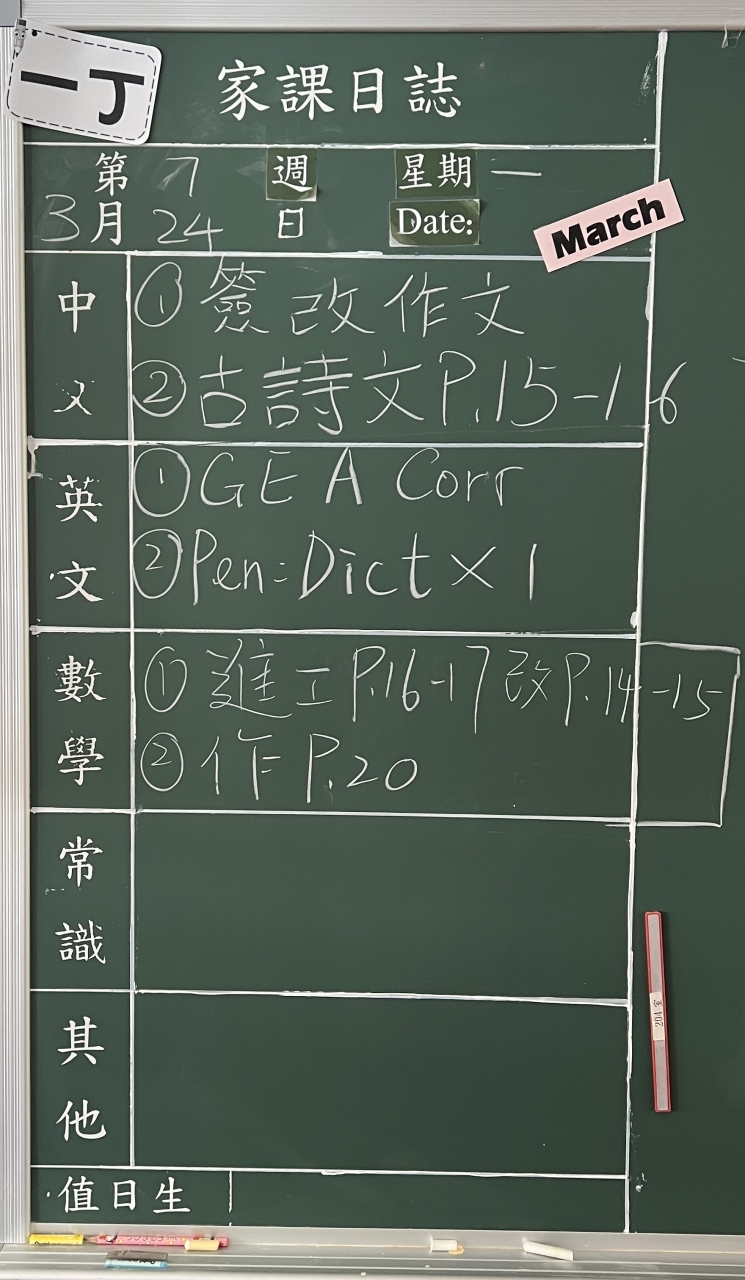 一丁
家課日誌
第 7 週 星期一
3月 24 日 Date: March
中文
① 簽改作文
② 古詩文 P.15-16
英文
① GE A Corr
② Pen: Dict × 1
數學
① 進工 P.16-17 改 P.14-15
② 作 P.20
常識
其他
值日生
204 室